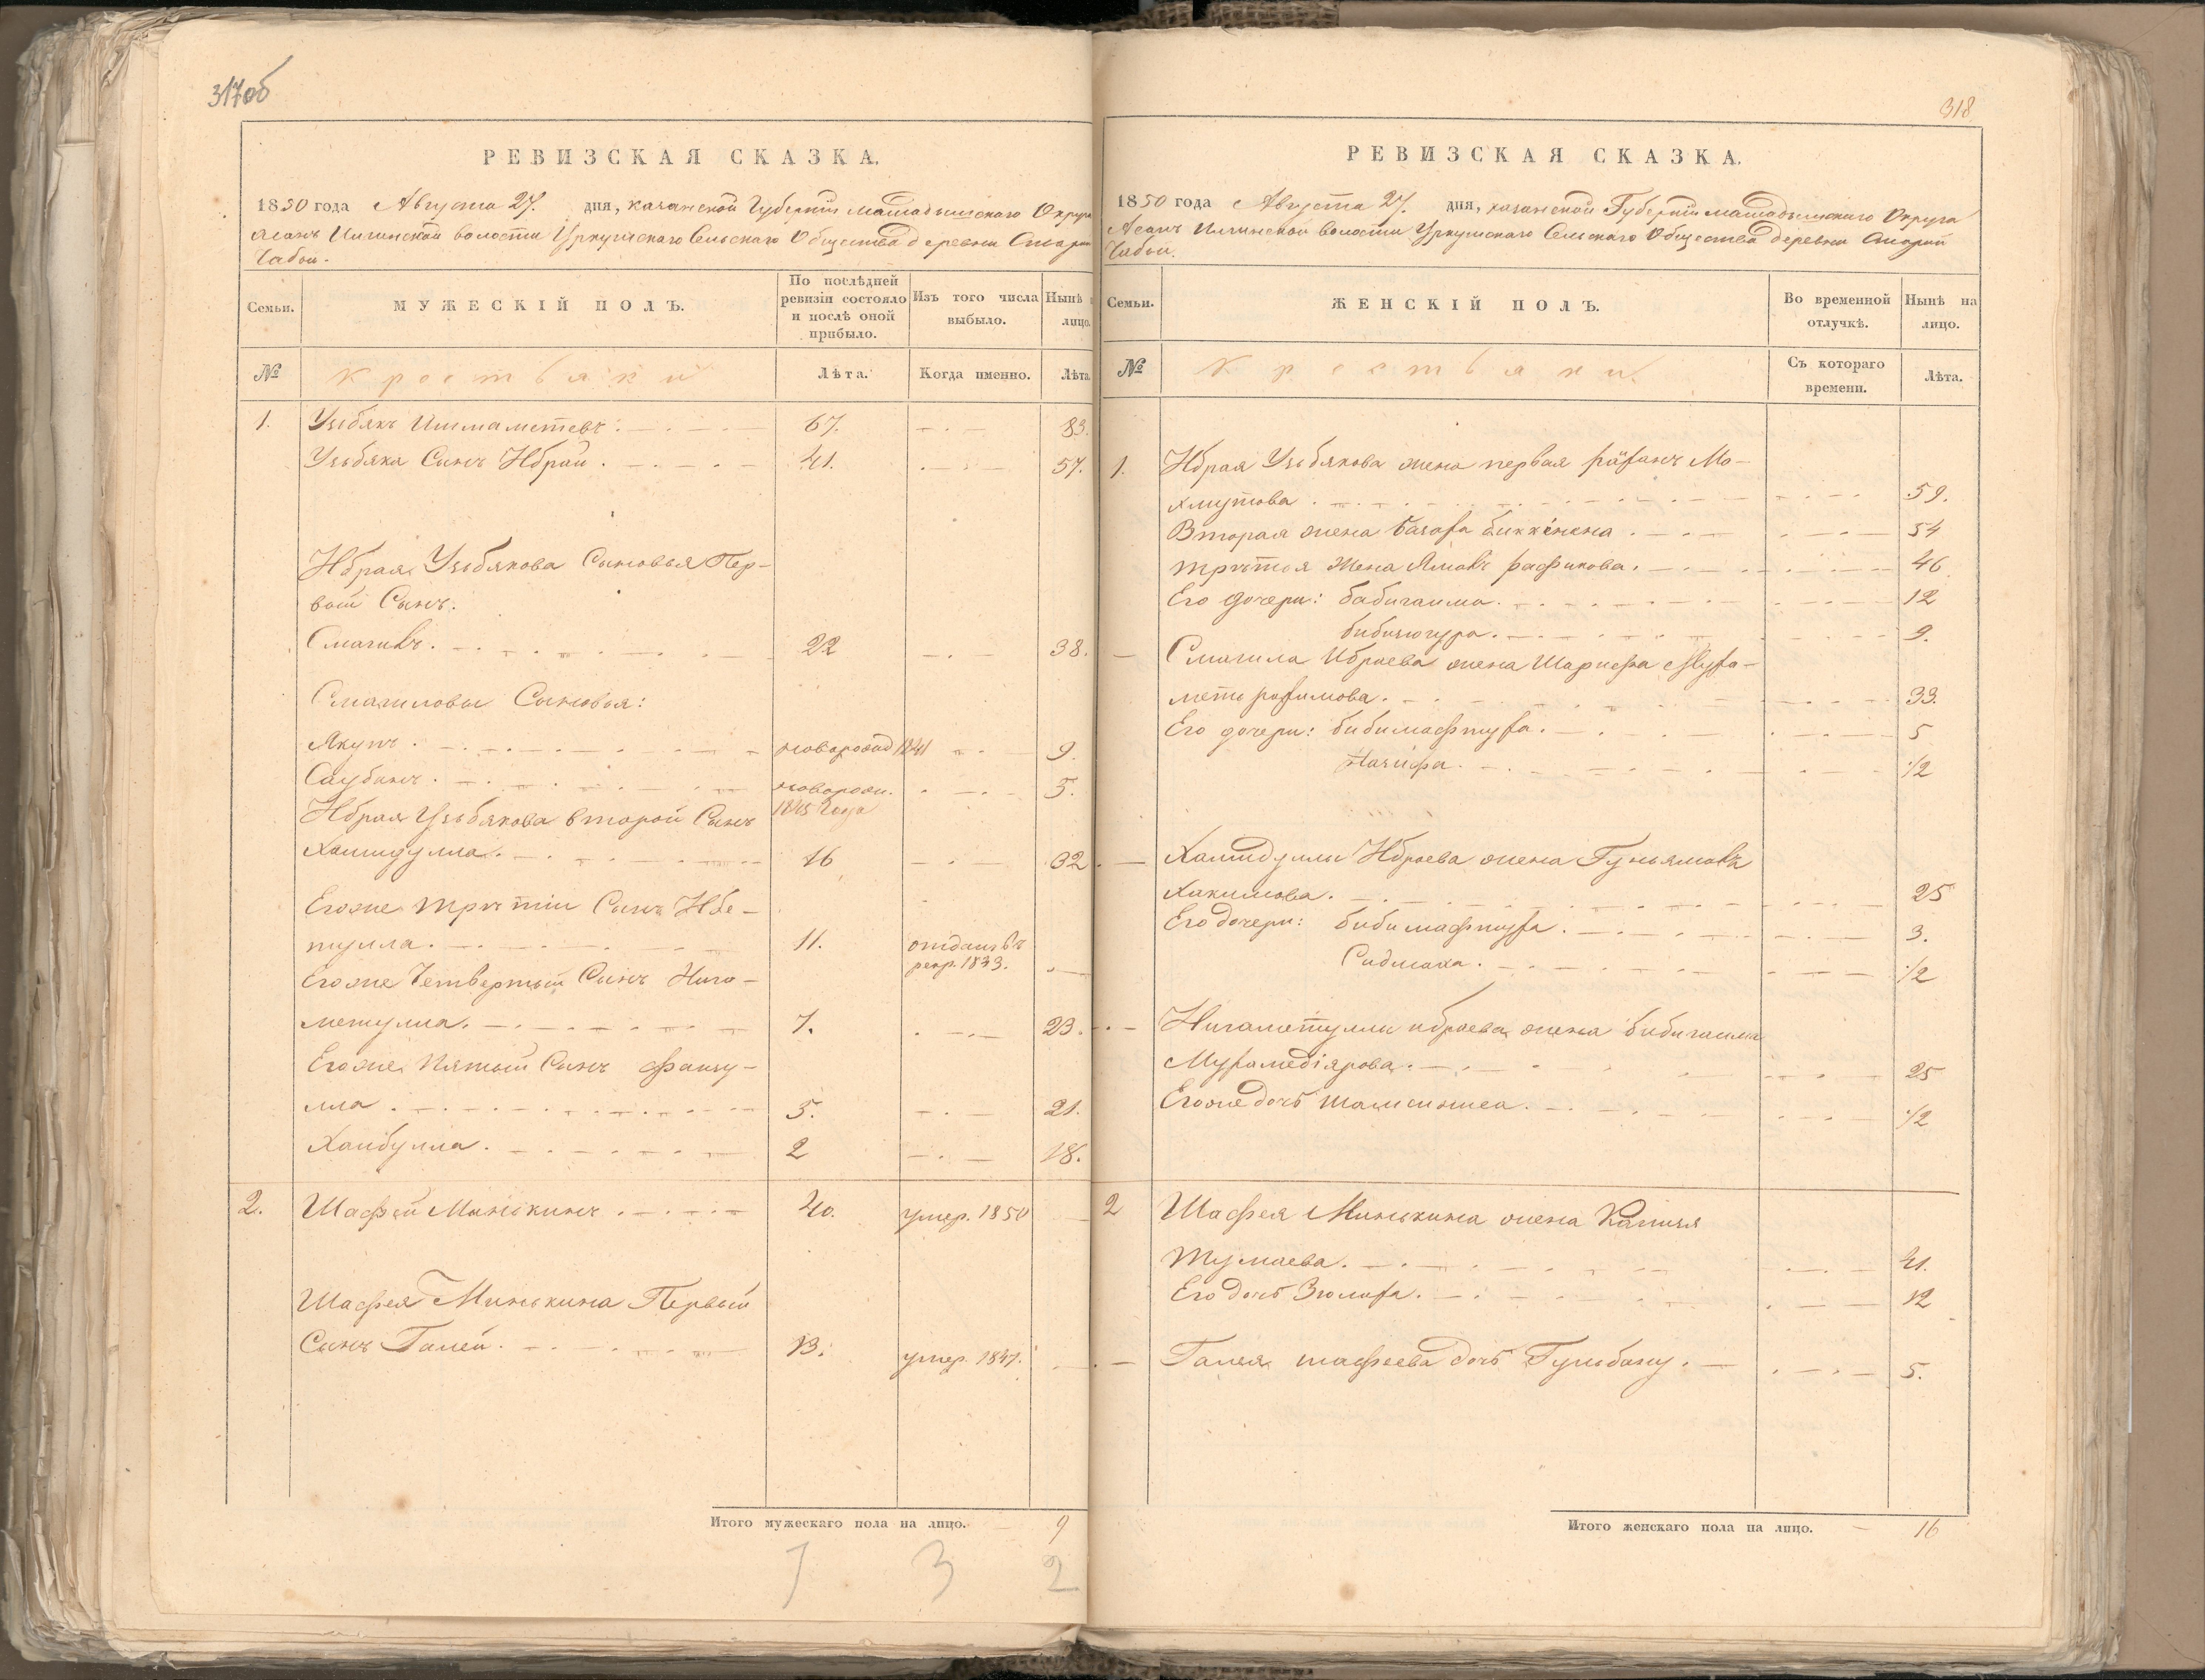 317об
РЕВИЗСКАЯ СКАЗКА.
1850 года Августа 27. дня, казанской Губерніи мамадышскаго Округа
Асанъ Илгинской волости Уркушскаго Сельскаго Общества деревни Старій
Чабьи.
Семьи.
МУЖЕСКІЙ ПОЛЪ.
По послѣдней ревизіи состояло и послѣ оной прибыло.
Изъ того числа выбыло.
Нынѣ лицо.
№
крестьяки
Лѣта.
Когда именно.
Лѣта.
1. Узьбякъ Ишмаметевъ: 67. 83.
Узьбяка Сынъ Ибрай. 41. 57.
Ибрая Узьбякова Сыновья Пер-
вый Сынъ.
Смагилъ. 22 38.
Смагиловы Сыновья:
Якупъ. новорожд 1841 9.
Саубанъ. новорожд. 5.
1845 Года
Ибрая Узьбякова второй Сынъ
Хамидулла. 16 32
Егоже третіи Сынъ Ибе-
тулла. 11. отданъ въ
рекр. 1843.
Егоже Четвертый Сынъ Нига-
метулла. 7. 23.
Егоже Пятый Сынъ Фаизу-
лла. 5. 21.
Хаибулла. 2 18.
2. Шафей Минькинъ. 40. умер. 1850
Шафея Минькина Первый
Сынъ Галей. 13. умер. 1847.
Итого мужескаго пола на лицо. 9
7 3 2
318
РЕВИЗСКАЯ СКАЗКА.
1850 года Августа 27. дня, казанской Губерніи мамадышскаго Округа
Асанъ Илгинской волости Уркушскаго Сельскаго Общества деревни Старій
Чабьи.
Семьи.
ЖЕНСКІЙ ПОЛЪ.
Во временной отлучкѣ.
Нынѣ на лицо.
№
крестьяки.
Съ котораго времени.
Лѣта.
1. Ибрая Узьбякова жена первая Мо-
хмутова. 59.
Вторая жена 54
третія Жена рафикова. 46
Его дочери: бибигаима. 12
9.
Смагила Ибраева жена Шарифа Муха-
меть рахимова. 33.
Его дочери: бибимафтуха. 5
Назифа. 1/2
Хамидуллы Ибраева жена Гульямалъ
Хакимова. 25
Его дочери: бибимафтуха. 3.
1/2
Нигаметуллы ибраева жена бибигаима
Мухамедіярова. 25
Егоже дочь 1/2
2 Шафея Минькина жена
Тумаева. 41.
Его дочь Зюлиха. 12
Галея шафеева дочь Гульбану. 5.
Итого женскаго пола на лицо. 16